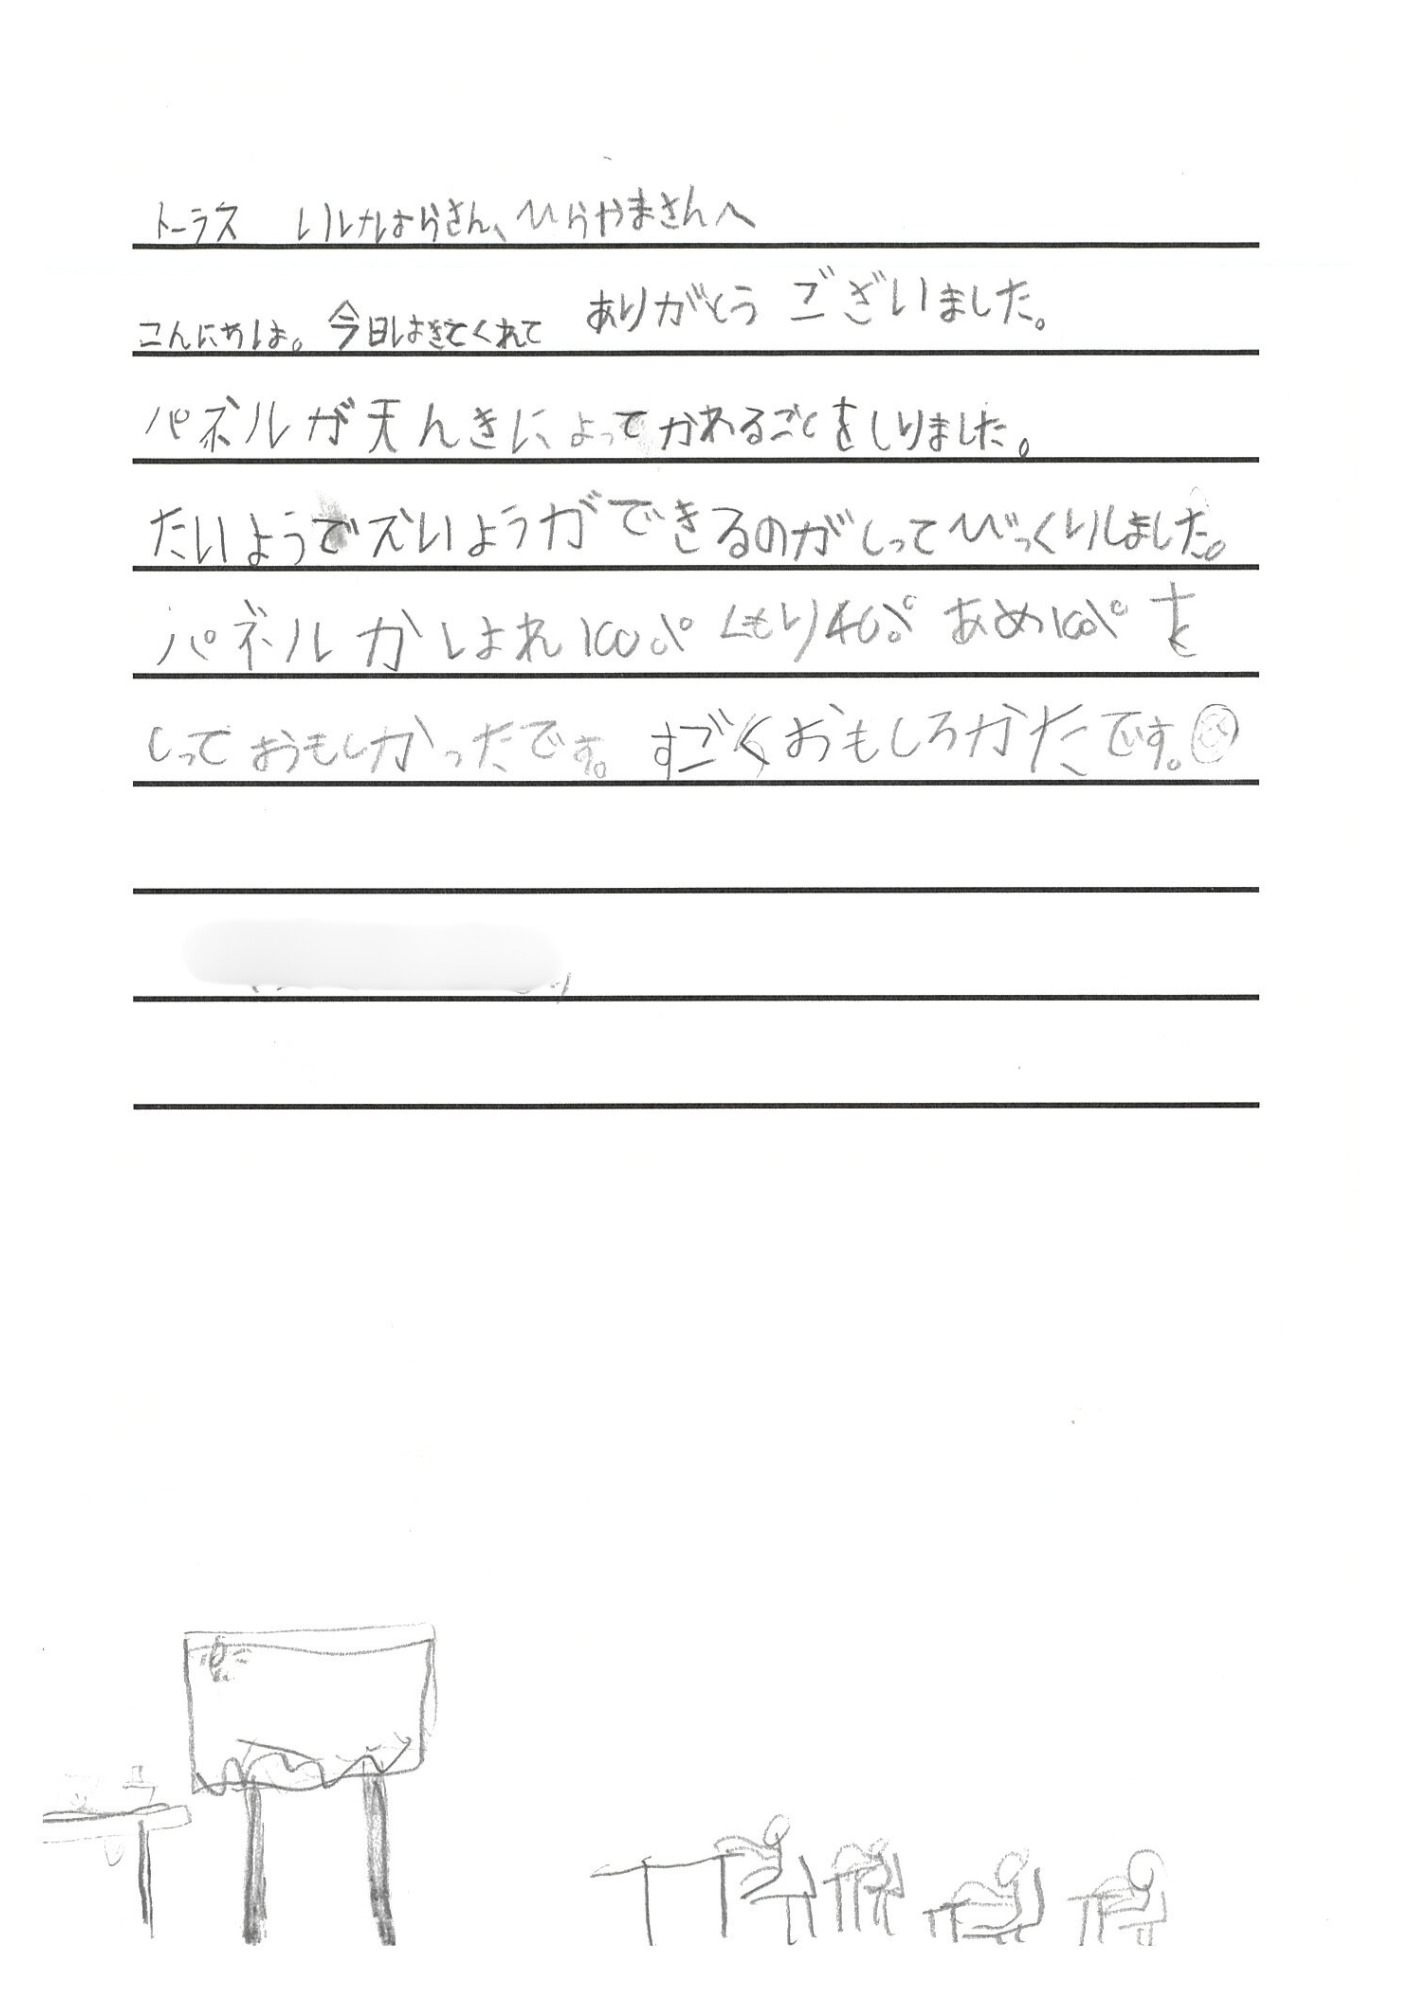 トーラス いしなはらさん、ひらやまさんへ
こんにちは。今日はきてくれて ありがとう ございました。
パネルが天んきによって かわるごとをしりました。
たいようでズいようができるのがしってびっくりしました。
パネルかはれ100% くもり40% あめ10% を
しっておうもしかったです。すごくおもしろかたです。